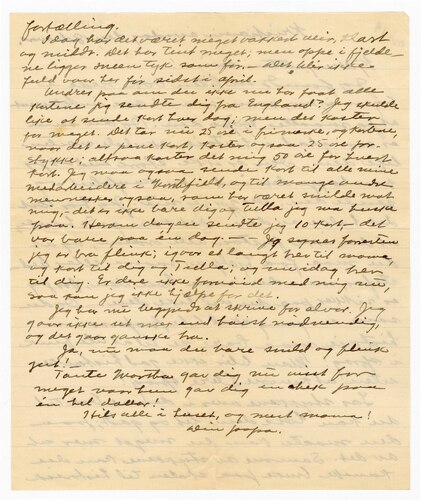 fortælling.
Idag har det været meget vakkert veir, klart
og mildt. Det har tint meget, men oppe i fjelde-
ne ligger sneen tyk som før. Det blir ikke
fuld vaar her før sidst i april.
Undres paa om du ikke nu har faat alle
kortene jeg sendte dig fra England? Jeg skulde
like at sende kort hver dag; men det koster
for meget. Det tar nu 25 øre i frimerke, og kortene,
naar det er pene kort, koster ogsaa 25 øre pr.
stykke; altsaa koster det mig 50 øre for hvert
kort. Jeg maa ogsaa sende kort til alle mine
medarbeidere i Northfield, og til mange andre
mennesker ogsaa, som har været snilde mot
mig, det er ikke bare dig og Tulla jeg maa tænke
paa. Herom dagen sendte jeg 10 kort - det
var bare paa en dag. — Jeg synes forresten
jeg er bra flink; igaar et langt brev til mama,
og kort til dig og Tulla; og nu idag brev
til dig. Er dere ikke fornøid med mig nu,
saa kan jeg ikke hjelpe for det.
Jeg har nu begyndt at skrive for alvor. Jeg
gaar ikke ut mer end høist nødvendig,
og det gaar ganske bra.
Ja, nu maa du bare snild og flink
gut!
Tante Martha gav dig nu vist for
meget naar hun gav dig en chek paa
en hel dollar!
Hils alle i huset, og mest mama!
Din papa.